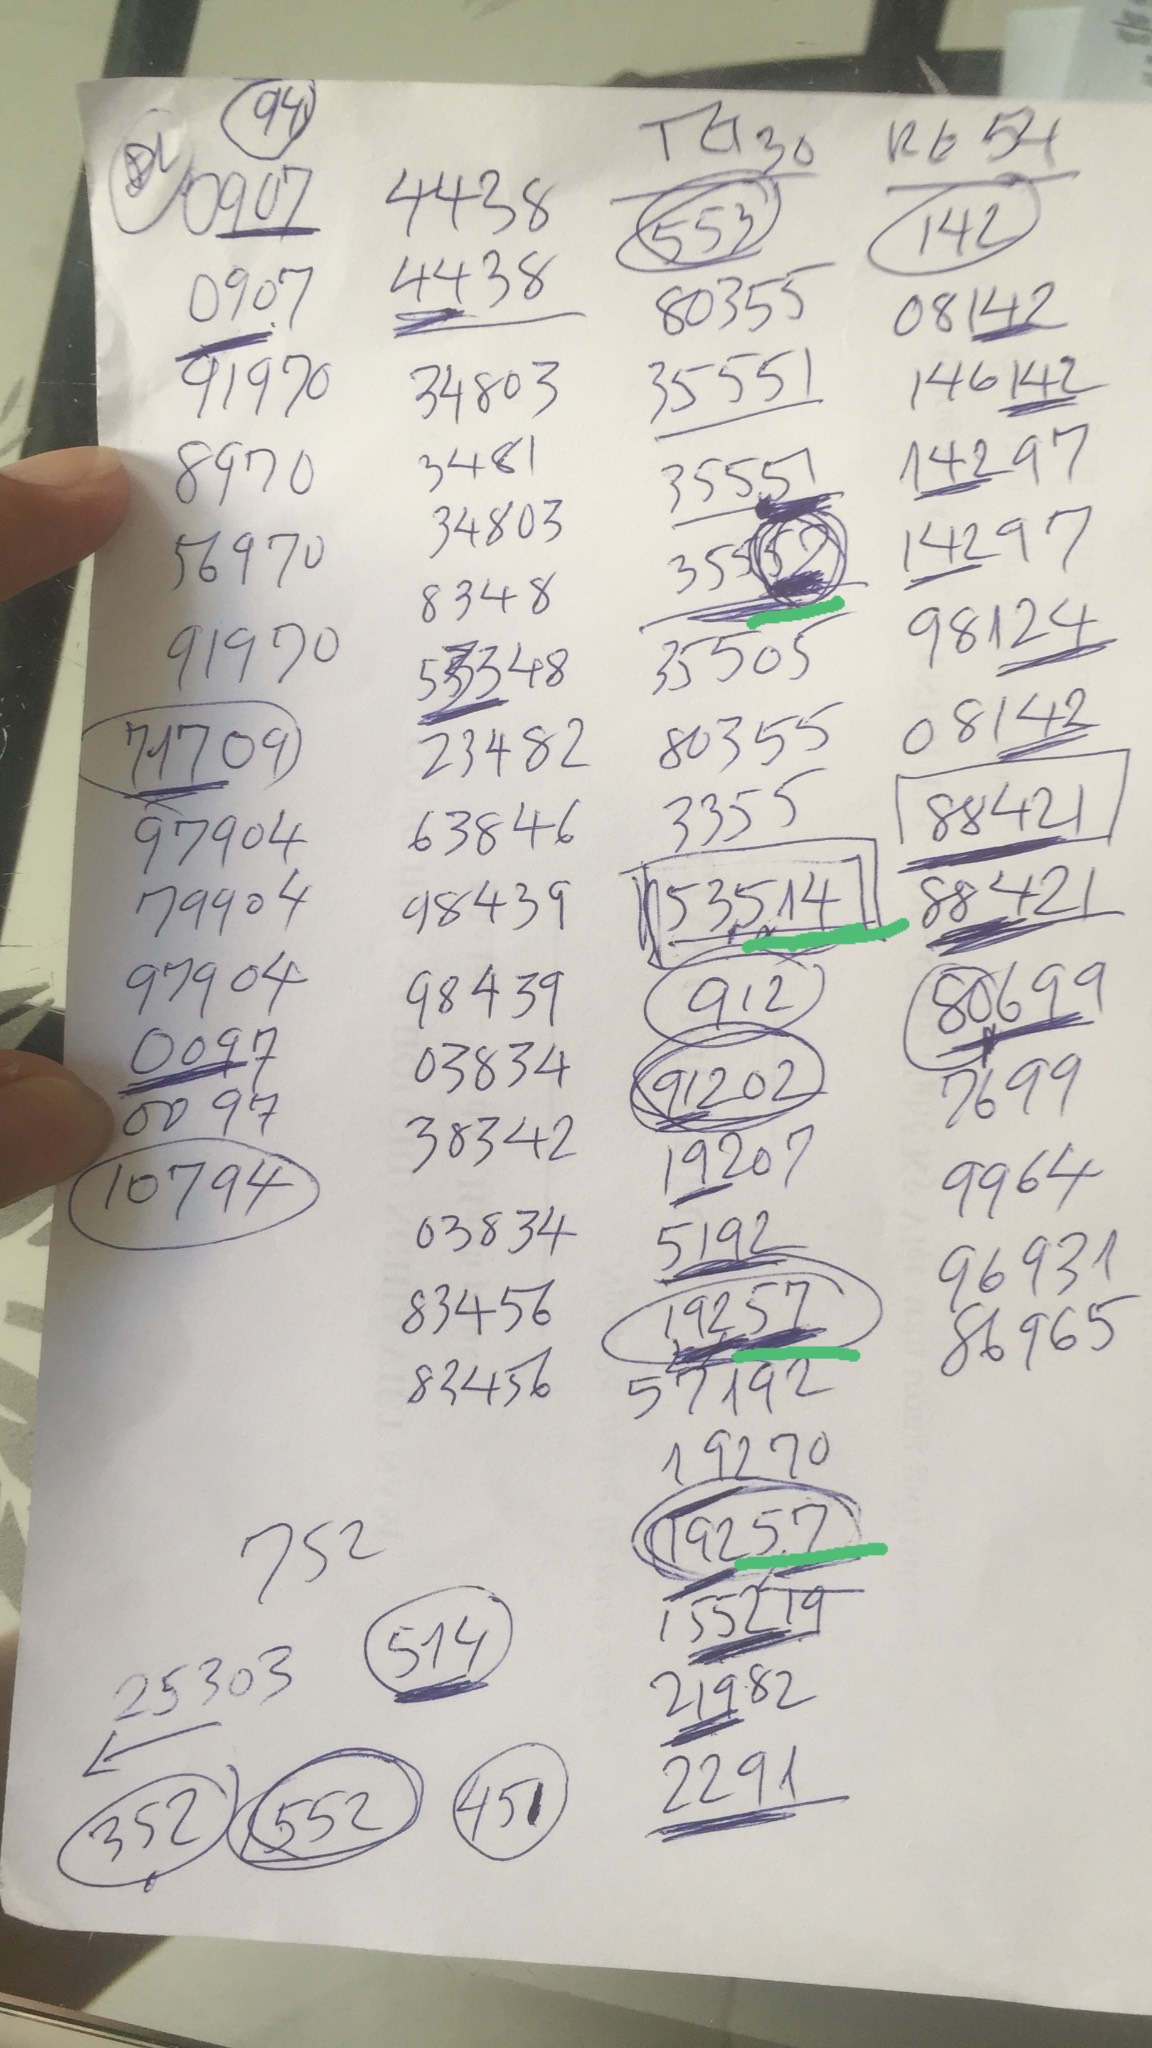 94
0907
0907
91970
8970
56970
91970
71709
97904
79904
97904
0097
0097
10794
4438
4438
34803
3481
34803
8348
53348
23482
63846
98439
98439
03834
38342
03834
83456
83456
30
553
80355
35551
35551
35552
35505
80355
3355
53514
912
91202
19207
5192
19257
57192
19270
19257
155219
21982
2291
R6 54
142
08142
146142
14297
14297
98124
08142
88421
88421
80699
7699
9964
96931
86965
752
514
25303
352
552
451